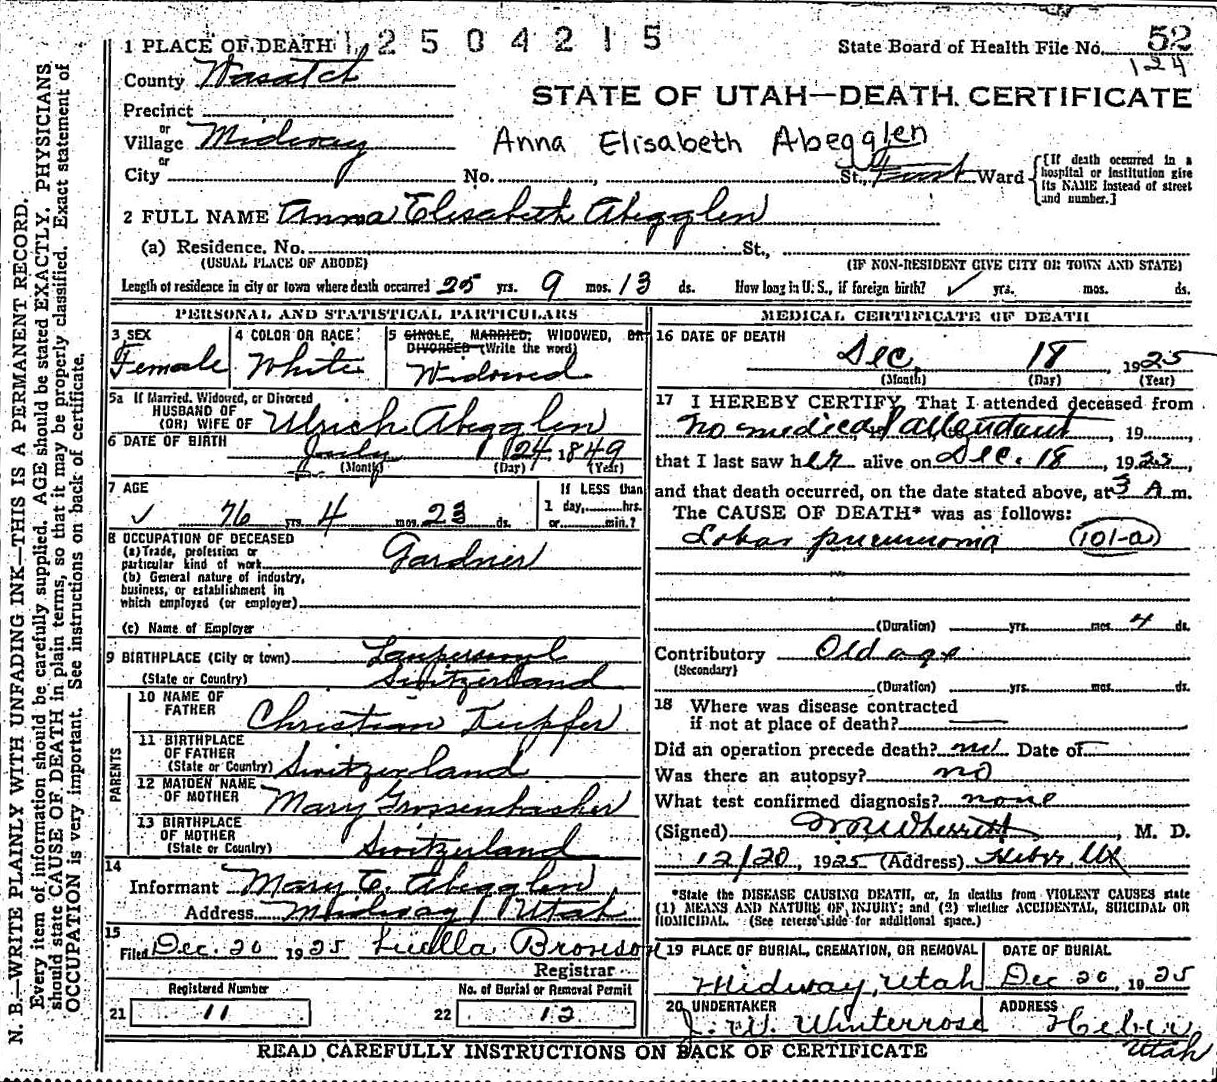 1 PLACE OF DEATH 12504215 State Board of Health File No. 52
124
County Wasatch
STATE OF UTAH—DEATH CERTIFICATE
Precinct
or
Village Midway Anna Elisabeth Abegglen
or
City No. , St., First Ward {[If death occurred in a hospital or institution give its NAME instead of street and number.]
2 FULL NAME Anna Elisabeth Abegglen
(a) Residence, No. St.,
(USUAL PLACE OF ABODE) (IF NON-RESIDENT GIVE CITY OR TOWN AND STATE)
Length of residence in city or town where death occurred 25 yrs. 9 mos. 13 ds. How long in U. S., if foreign birth? ✓ yrs. mos. ds.
PERSONAL AND STATISTICAL PARTICULARS
3 SEX
Female
4 COLOR OR RACE
White
5 SINGLE, MARRIED, WIDOWED, OR
DIVORCED (Write the word)
Widowed
5a If Married, Widowed, or Divorced
HUSBAND OF
(OR) WIFE OF Ulrich Abegglen
6 DATE OF BIRTH July 24, 1849
(Month) (Day) (Year)
7 AGE
✓ 76 yrs. 4 mos. 23 ds.
If LESS than
1 day, hrs.
or min.?
8 OCCUPATION OF DECEASED
(a) Trade, profession or
particular kind of work Gardner
(b) General nature of industry,
business, or establishment in
which employed (or employer)
(c) Name of Employer
9 BIRTHPLACE (City or town)
(State or Country) Switzerland
PARENTS
10 NAME OF
FATHER Christian Kupfer
11 BIRTHPLACE
OF FATHER
(State or Country) Switzerland
12 MAIDEN NAME
OF MOTHER Mary Grossenbacher
13 BIRTHPLACE
OF MOTHER
(State or Country) Switzerland
14
Informant Mary E. Abegglen
Address Midway, Utah
15
Filed Dec. 20 1925 Luella Bronson
Registrar
Registered Number
21 11
No. of Burial or Removal Permit
22 12
MEDICAL CERTIFICATE OF DEATH
16 DATE OF DEATH
Dec 18 1925
(Month) (Day) (Year)
17 I HEREBY CERTIFY, That I attended deceased from
No medical attendant, 19 ,
that I last saw her alive on Dec. 18, 1925,
and that death occurred, on the date stated above, at 3 A m.
The CAUSE OF DEATH* was as follows:
Lobar pneumonia (101-a)
(Duration) yrs. mos. 4 ds.
Contributory Old age
(Secondary)
(Duration) yrs. mos. ds.
18 Where was disease contracted
if not at place of death?
Did an operation precede death? no Date of
Was there an autopsy? no
What test confirmed diagnosis? none
(Signed) W R Wherritt, M. D.
12/20, 1925 (Address) Heber, Ut
*State the DISEASE CAUSING DEATH, or, in deaths from VIOLENT CAUSES state
(1) MEANS AND NATURE OF INJURY; and (2) whether ACCIDENTAL, SUICIDAL OR
HOMICIDAL. (See reverse side for additional space.)
19 PLACE OF BURIAL, CREMATION, OR REMOVAL
Midway, Utah
DATE OF BURIAL
Dec 20, 1925
20 UNDERTAKER
J. W. Winterrose
ADDRESS
Heber
Utah
READ CAREFULLY INSTRUCTIONS ON BACK OF CERTIFICATE
N. B.—WRITE PLAINLY WITH UNFADING INK—THIS IS A PERMANENT RECORD.
Every item of information should be carefully supplied. AGE should be stated EXACTLY. PHYSICIANS
should state CAUSE OF DEATH in plain terms, so that it may be properly classified. Exact statement of
OCCUPATION is very important. See instructions on back of certificate.